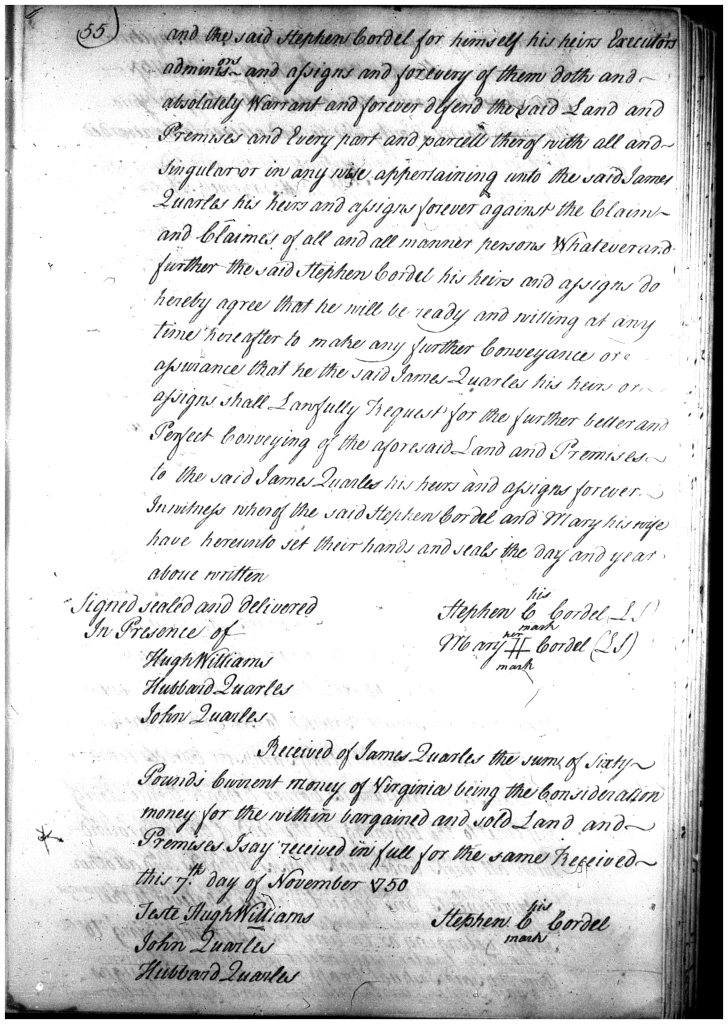 55
and the said Stephen Cordel for himself his heirs Executors
adminrs and assigns and for every of them doth and
absolutely Warrant and forever defend the said Land and
Premises and Every part and parcell therof with all and
singular or in any wise appertaining unto the said James
Quarles his heirs and assigns forever against the Claim
and Claimes of all and all manner persons Whatever and
further the said Stephen Cordel his heirs and assigns do
hereby agree that he will be ready and willing at any
time hereafter to make any further Conveyance or
assurance that he the said James Quarles his heirs or
assigns shall Lawfully Request for the further better and
Perfect Conveying of the aforesaid Land and Premises
to the said James Quarles his heirs and assigns forever.
In witness wherof the said Stephen Cordel and Mary his wife
have hereunto set their hands and seals the day and year
above written
Signed sealed and delivered
In Presence of
Hugh Williams
Hubbard Quarles
John Quarles
his
Stephen C Cordel (LS)
mark
her
Mary H Cordel (LS)
mark
Received of James Quarles the sum of Sixty
Pounds Current money of Virginia being the Consideration
money for the within bargained and sold Land and
Premises I say received in full for the same Received
this 7th. day of November 1750
Teste Hugh Williams
John Quarles
Hubbard Quarles
his
Stephen C Cordel
mark